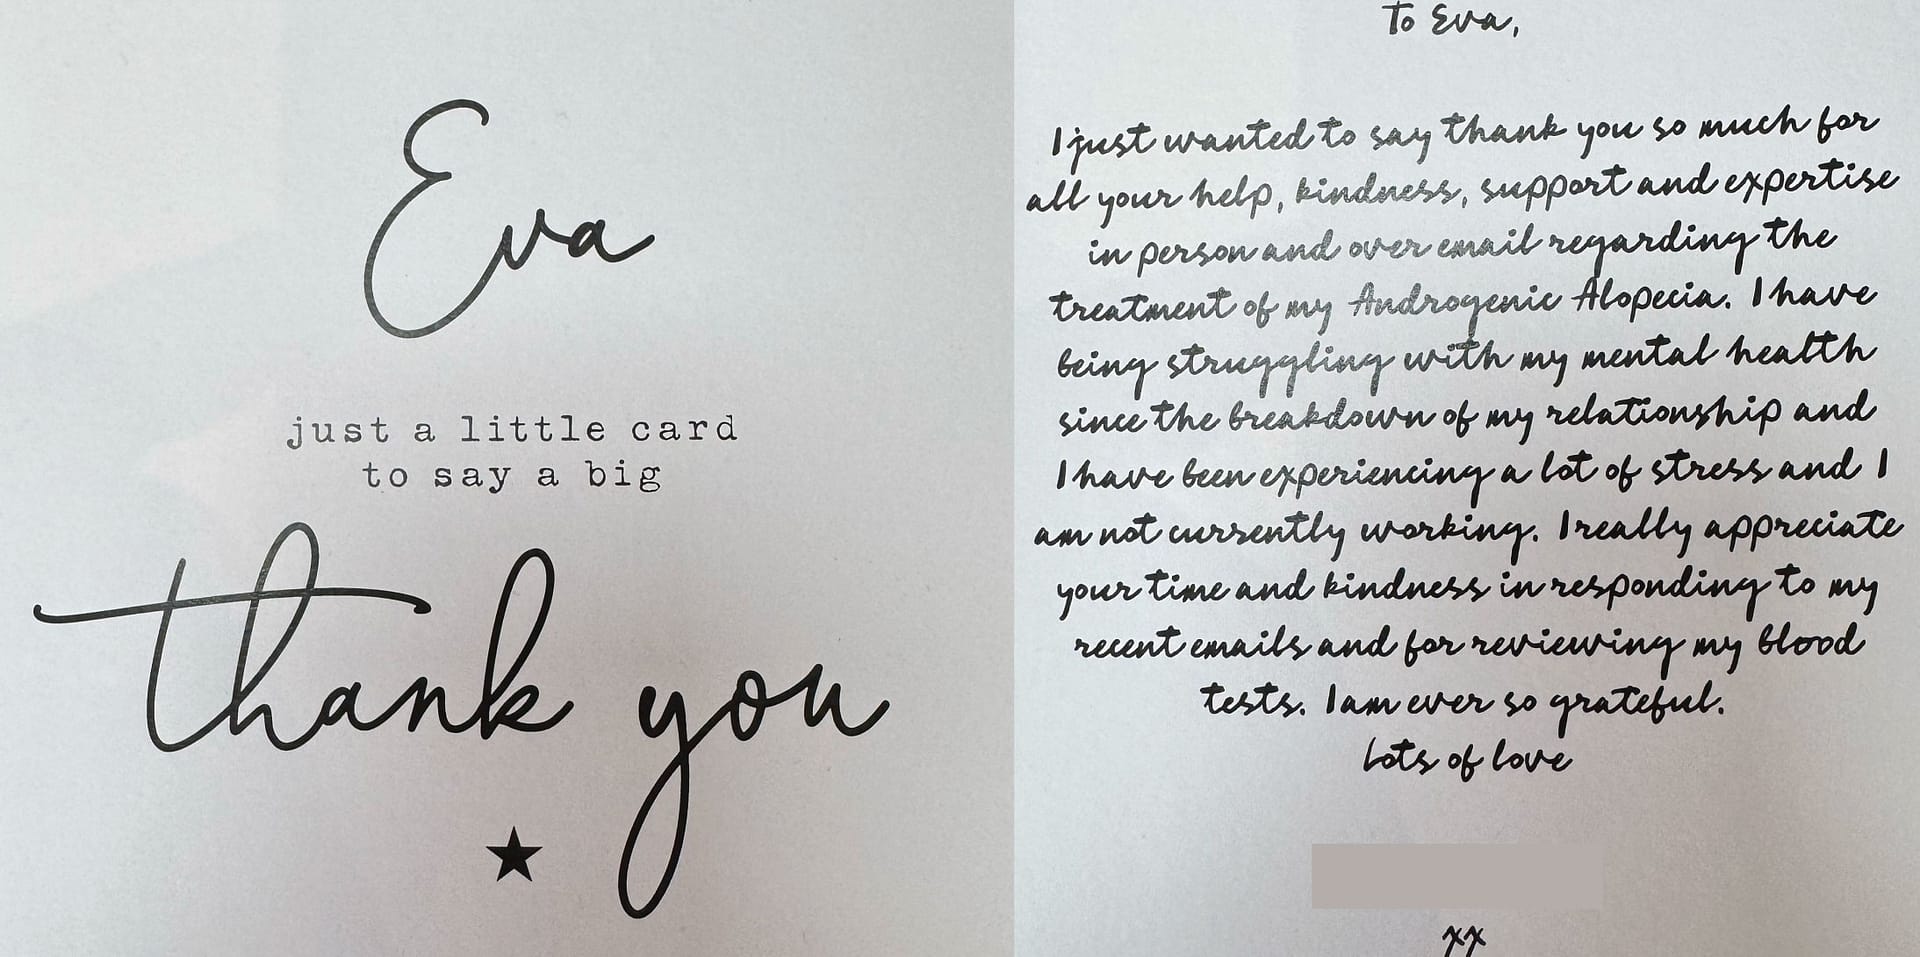 Eva
just a little card
to say a big
thank you
To Eva,
I just wanted to say thank you so much for
all your help, kindness, support and expertise
in person and over email regarding the
treatment of my Androgenic Alopecia. I have
being struggling with my mental health
since the breakdown of my relationship and
I have been experiencing a lot of stress and I
am not currently working. I really appreciate
your time and kindness in responding to my
recent emails and for reviewing my blood
tests. I am ever so grateful.
Lots of love
xx